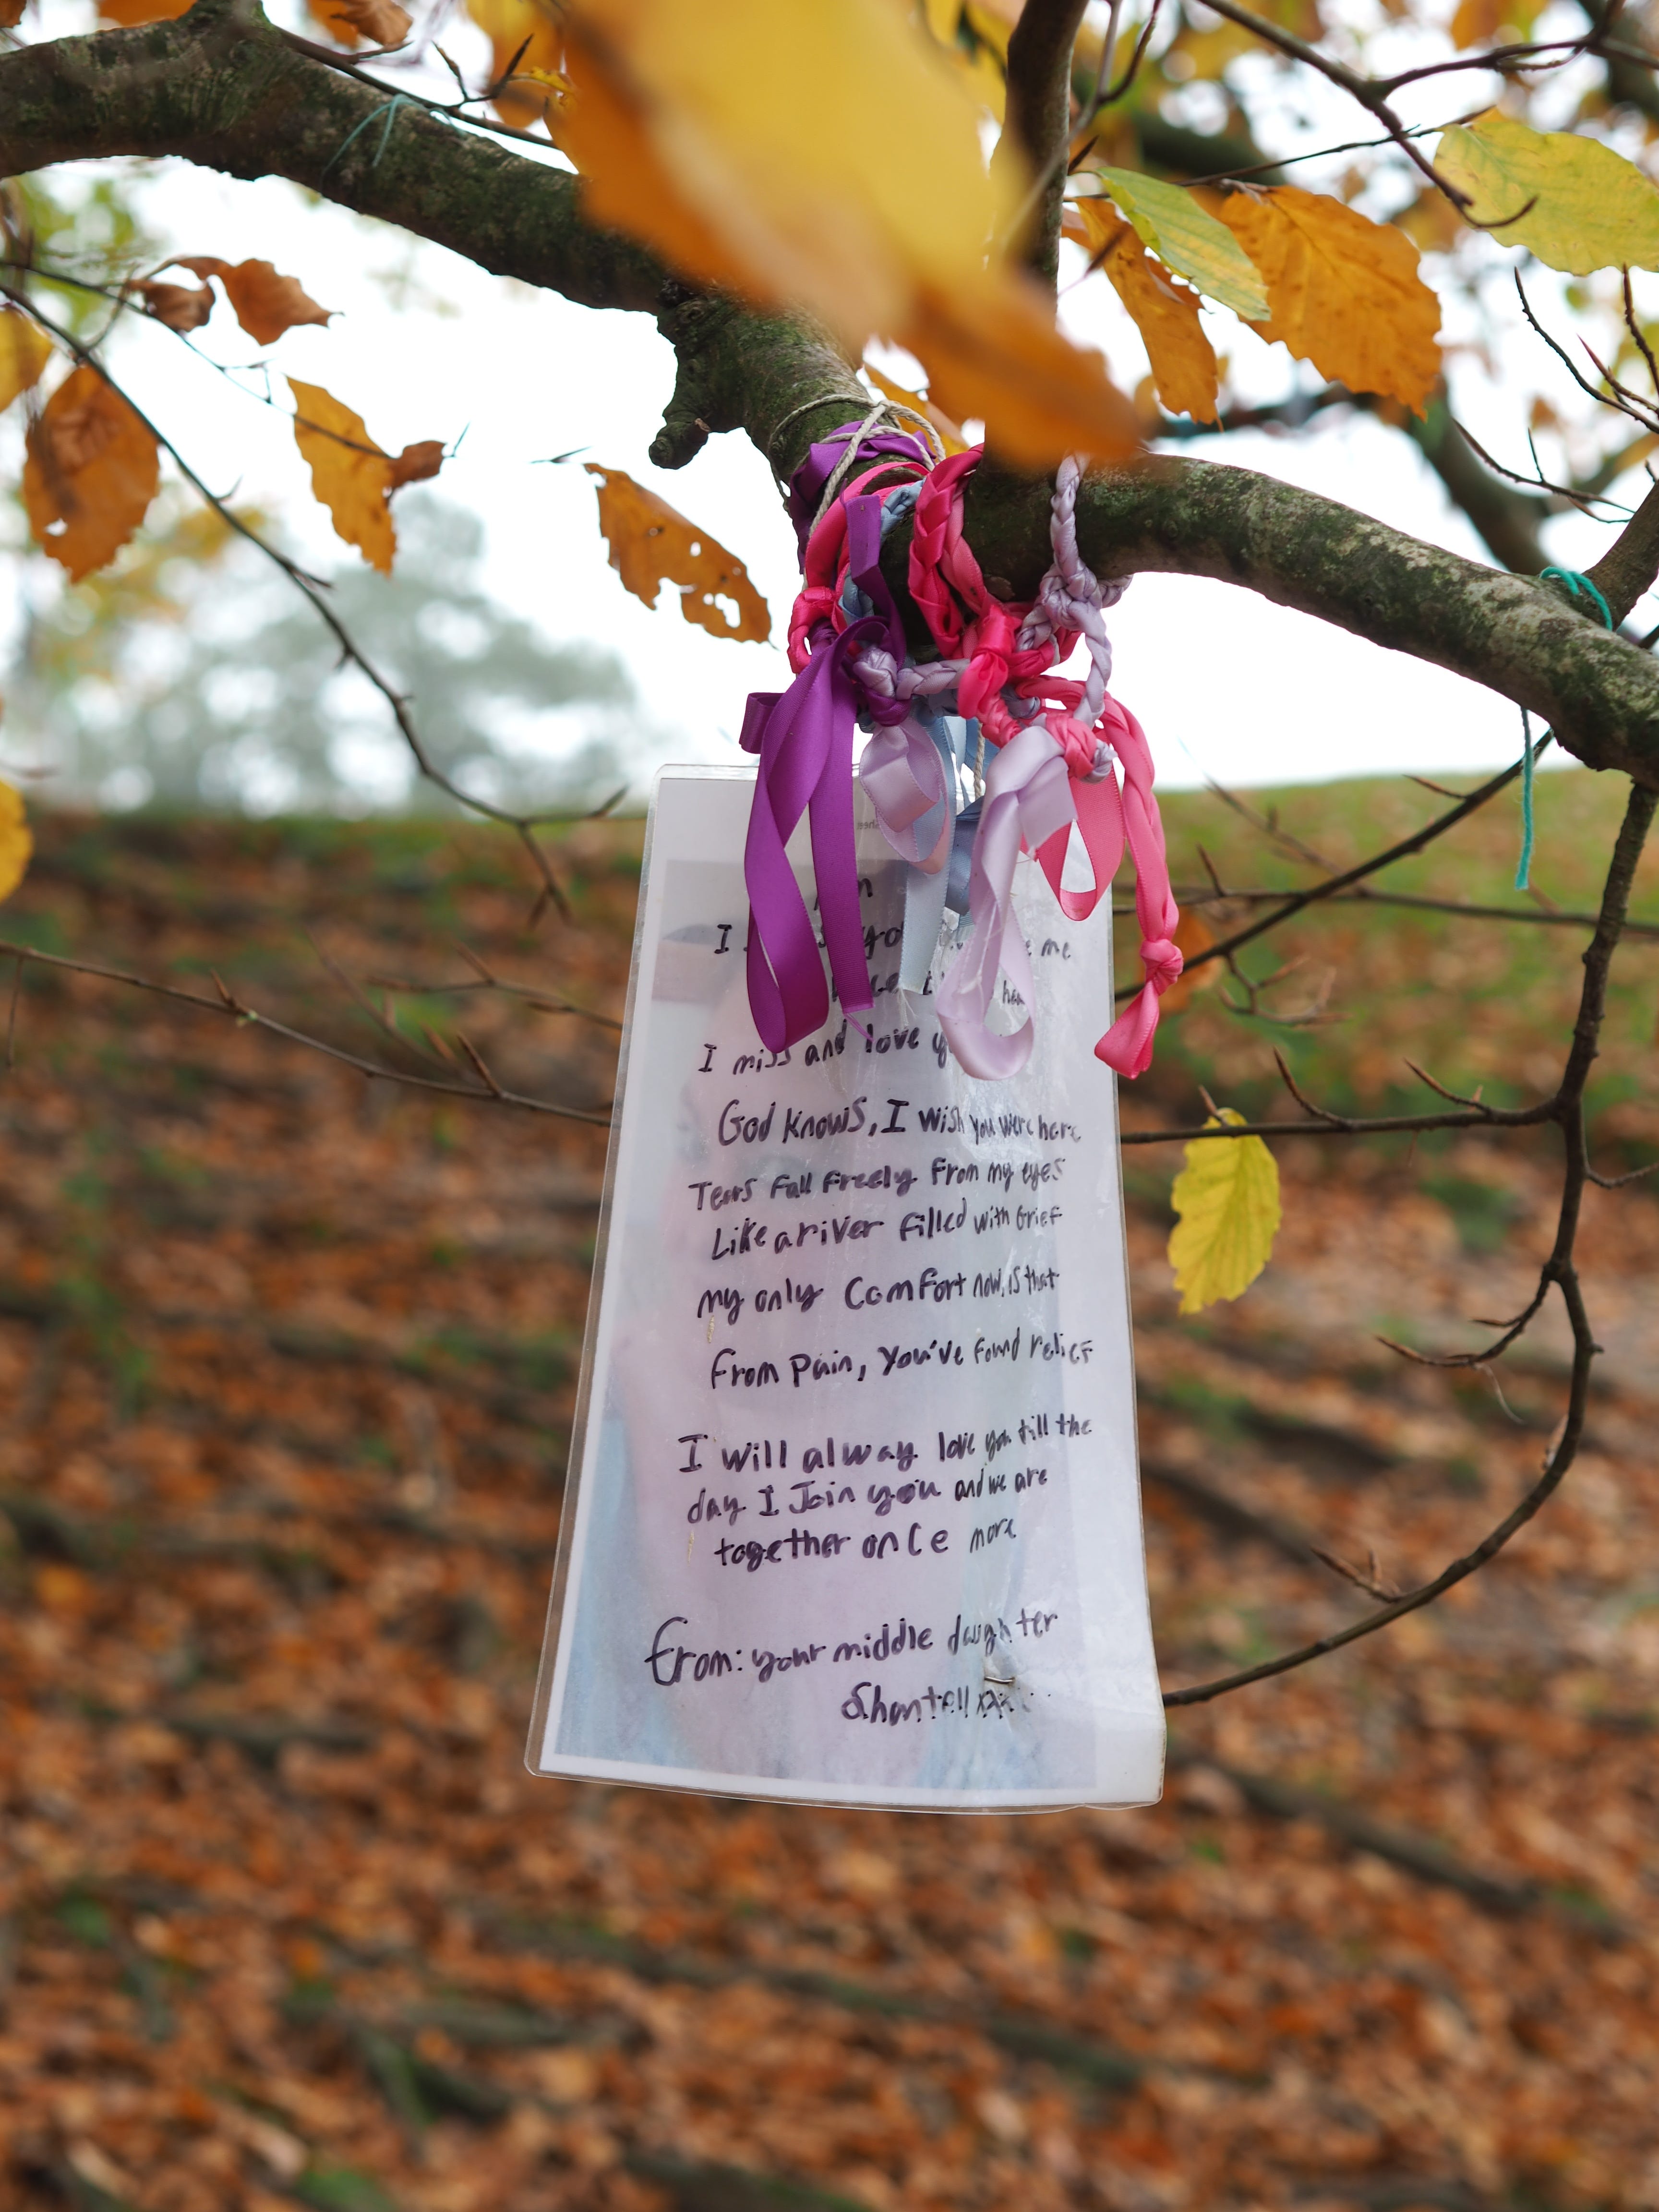 I me
I miss and love
God knows, I wish you were here
Tears fall freely from my eyes
Like a river filled with Grief
my only comfort now, is that
from pain, you've found relief
I will alway love you till the
day I Join you and we are
together once more
from: your middle daughter
Shantell